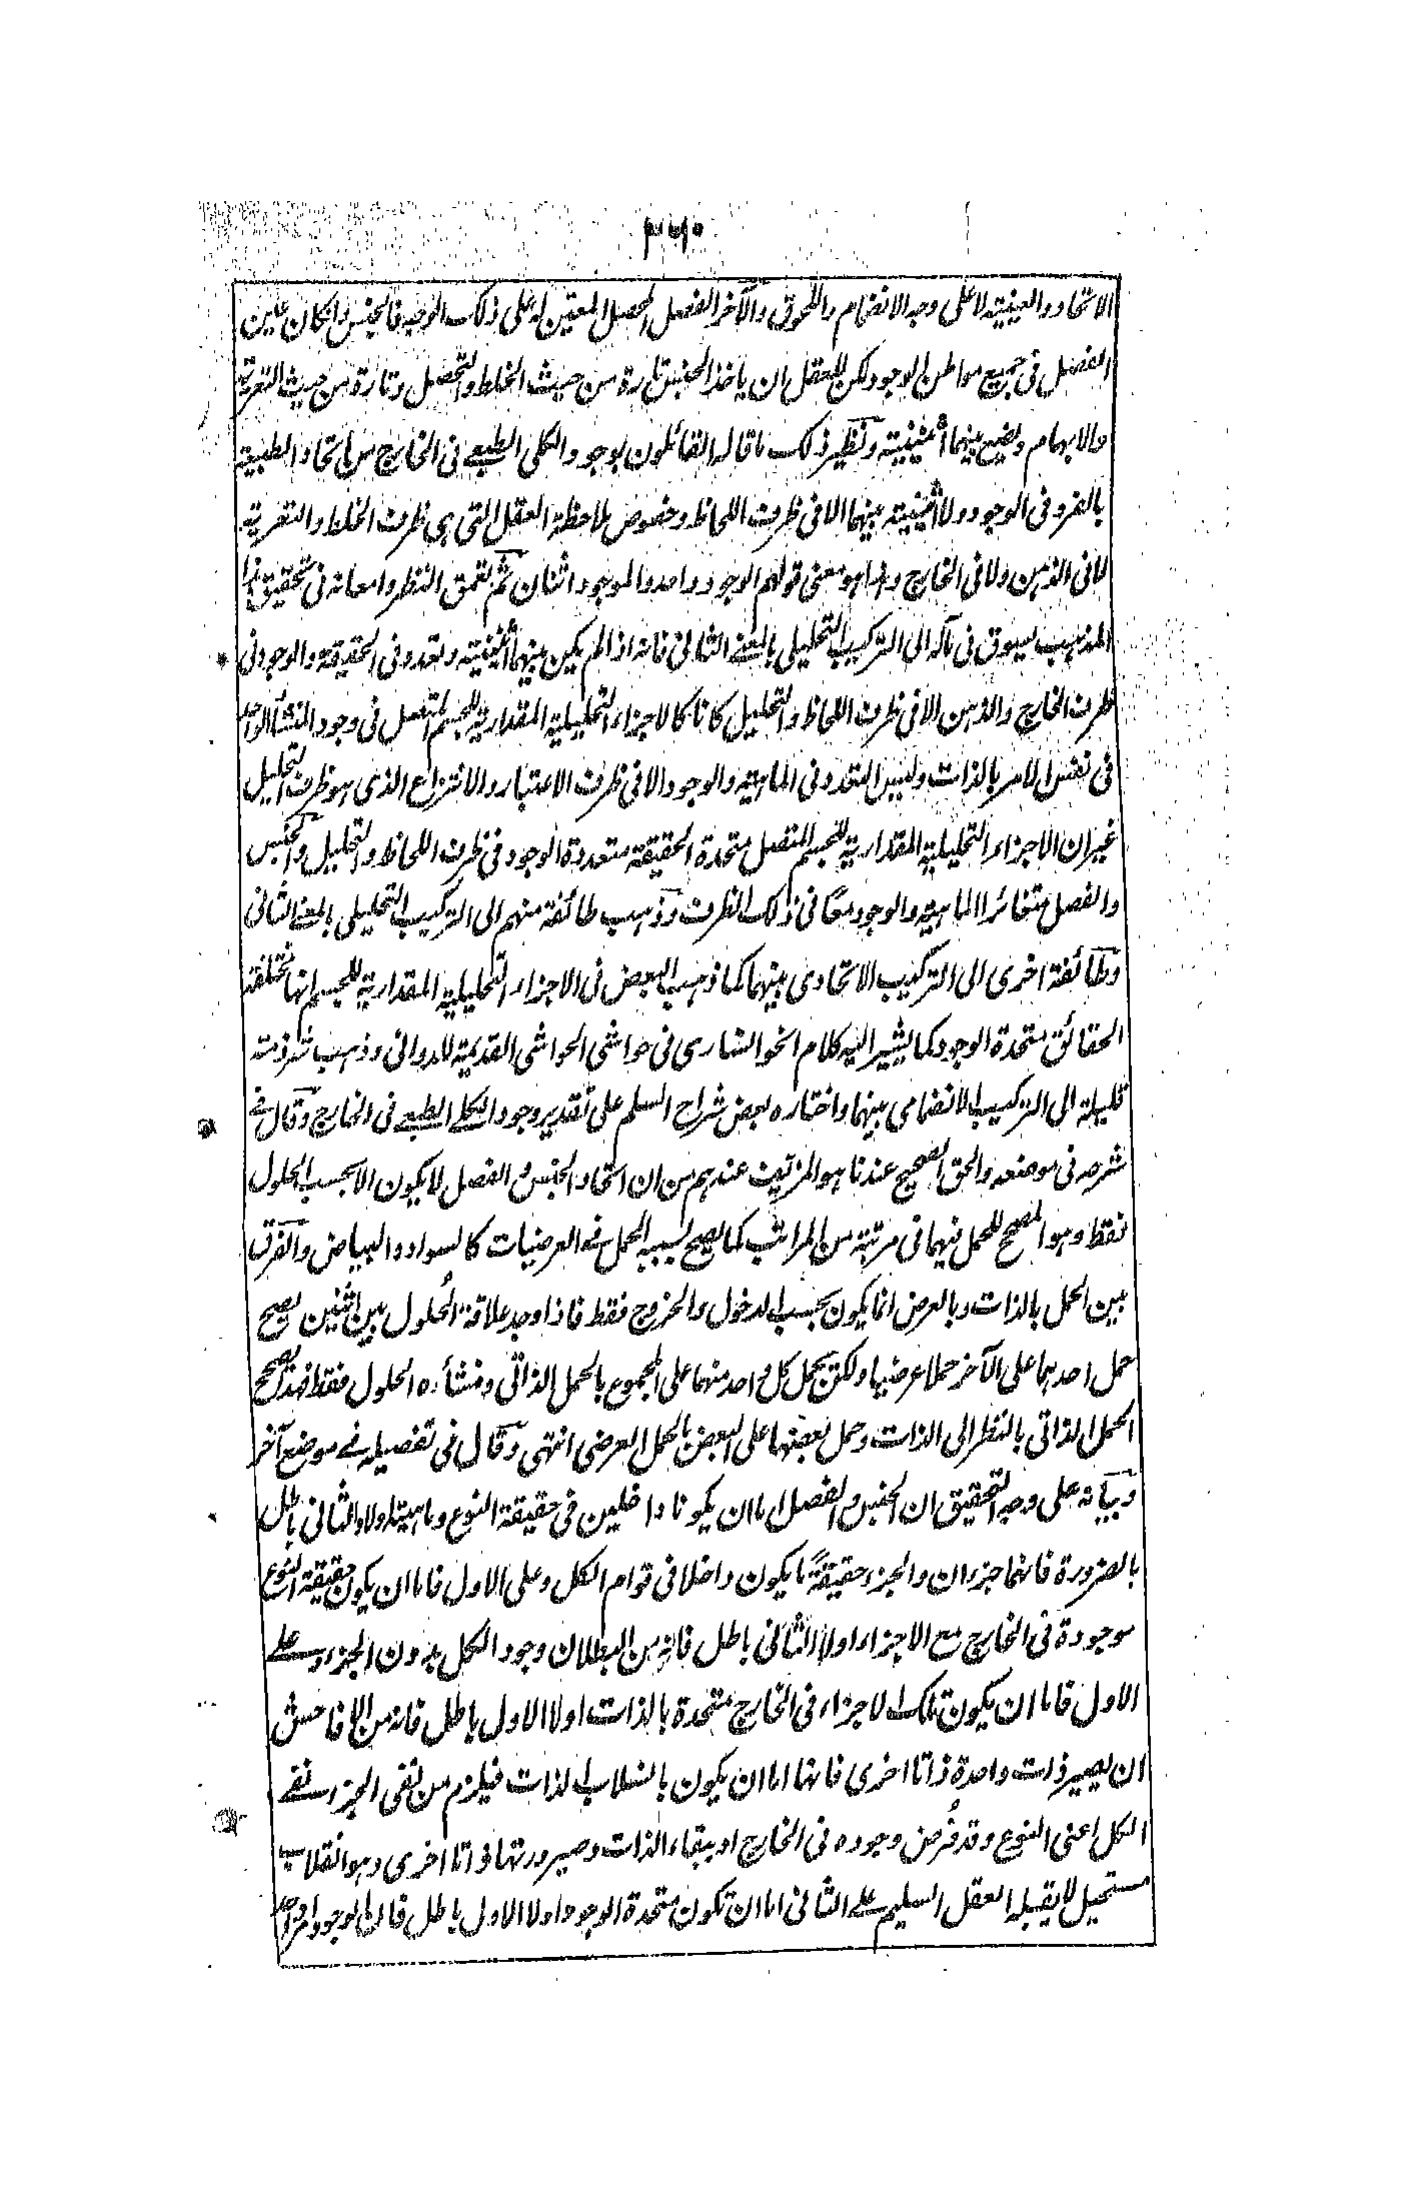 ٢٦٠
الاتحاد والعينية لا على وجه الانضمام واللحوق والآخر الفصل المحصل المعين له على ذلك الوجه فالجنس وان كان عين
الفصل فى جميع مواطن الوجود لكن للعقل ان ياخذ الجنس تارة من حيث الخلط والتحصل وتارة من حيث التعرية
والابهام ويضع بينهما اثنينية ونظير ذلك ما قاله القائلون بوجود الكلى الطبعى فى الخارج من اتحاد الطبيعة
بالفرد فى الوجود ولا اثنينية بينهما الا فى ظرف اللحاظ وخصوص ملاحظة العقل التى هى ظرف الخلط والتعرية
لا فى الذهن ولا فى الخارج وهذا هو معنى قولهم الوجود واحد والموجود اثنان ثم تعمق النظر وامعانه فى تحقيق هذا
المذهب يسوق فى مآله الى التركيب التحليلى بالمعنى الثانى فانه اذا لم يكن بينهما اثنينية وتعدد فى الحقيقة والوجود فى
ظرف الخارج والذهن الا فى ظرف اللحاظ والتحليل كانا كالاجزاء التحليلية المقدارية للجسم المتصل فى وجود المنشأ الواحد
فى نفس الامر بالذات وليس التعدد فى الماهية والوجود الا فى ظرف الاعتبار والانتزاع الذى هو ظرف التحليل
غير ان الاجزاء التحليلية المقدارية للجسم المتصل متحدة الحقيقة متعددة الوجود فى ظرف اللحاظ والتحليل والجنس
والفصل متغائرا الماهية والوجود معًا فى ذلك الظرف وذهب طائفة منهم الى التركيب التحليلى بالمعنى الثانى
وطائفة اخرى الى التركيب الاتحادى بينهما كما ذهب البعض فى الاجزاء التحليلية المقدارية للجسم انها مختلفة
الحقائق متحدة الوجود كما يشير اليه كلام الخوانسارى فى حواشى الحواشى القديمة للدوانى وذهب شرذمة
قليلة الى التركيب الانضمامى بينهما واختاره بعض شراح السلم على تقدير وجود الكلى الطبعى فى الخارج وقال فى
شرحه فى موضعه والحق الصحيح عندنا هو المزيف عندهم من ان اتحاد الجنس والفصل لا يكون الا بحسب الحلول
فقط وهو المصحح للحمل فيهما فى مرتبة من المراتب كما يصح بسببه الحمل فى العرضيات كالسواد والبياض والفرق
بين الحمل بالذات وبالعرض انما يكون بحسب الدخول والخروج فقط فاذا وجد علاقة الحلول بين اثنين يصح
حمل احدهما على الآخر حملا عرضيا ولكن يحمل كل واحد منهما على المجموع بالحمل الذاتى ومنشأه الحلول فقط فهذا يصح
الحمل الذاتى بالنظر الى الذات وحمل بعضها على البعض بالحمل العرضى انتهى وقال فى تفصيله فى موضع آخر
وبيانه على وجه التحقيق ان الجنس والفصل اما ان يكونا داخلين فى حقيقة النوع وماهيته اولا والثانى باطل
بالضرورة فانهما جزءان والجزء حقيقةً ما يكون داخلا فى قوام الكل وعلى الاول فاما ان يكون حقيقة النوع
موجودة فى الخارج مع الاجزاء اولا والثانى باطل فانه من البطلان وجود الكل بدون الجزء وعلى
الاول فاما ان يكون تلك الاجزاء فى الخارج متحدة بالذات اولا الاول باطل فانه من الافاحش
ان يصير ذات واحدة ذاتا اخرى فانها اما ان يكون بانسلاب الذات فيلزم من نفى الجزء نفى
الكل اعنى النوع وقد فُرض وجوده فى الخارج او ببقاء الذات وصيرورتها ذاتا اخرى وهو انقلاب
مستحيل لا يقبله العقل السليم على الثانى اما ان تكون متحدة الوجود اولا الاول باطل فان الوجود